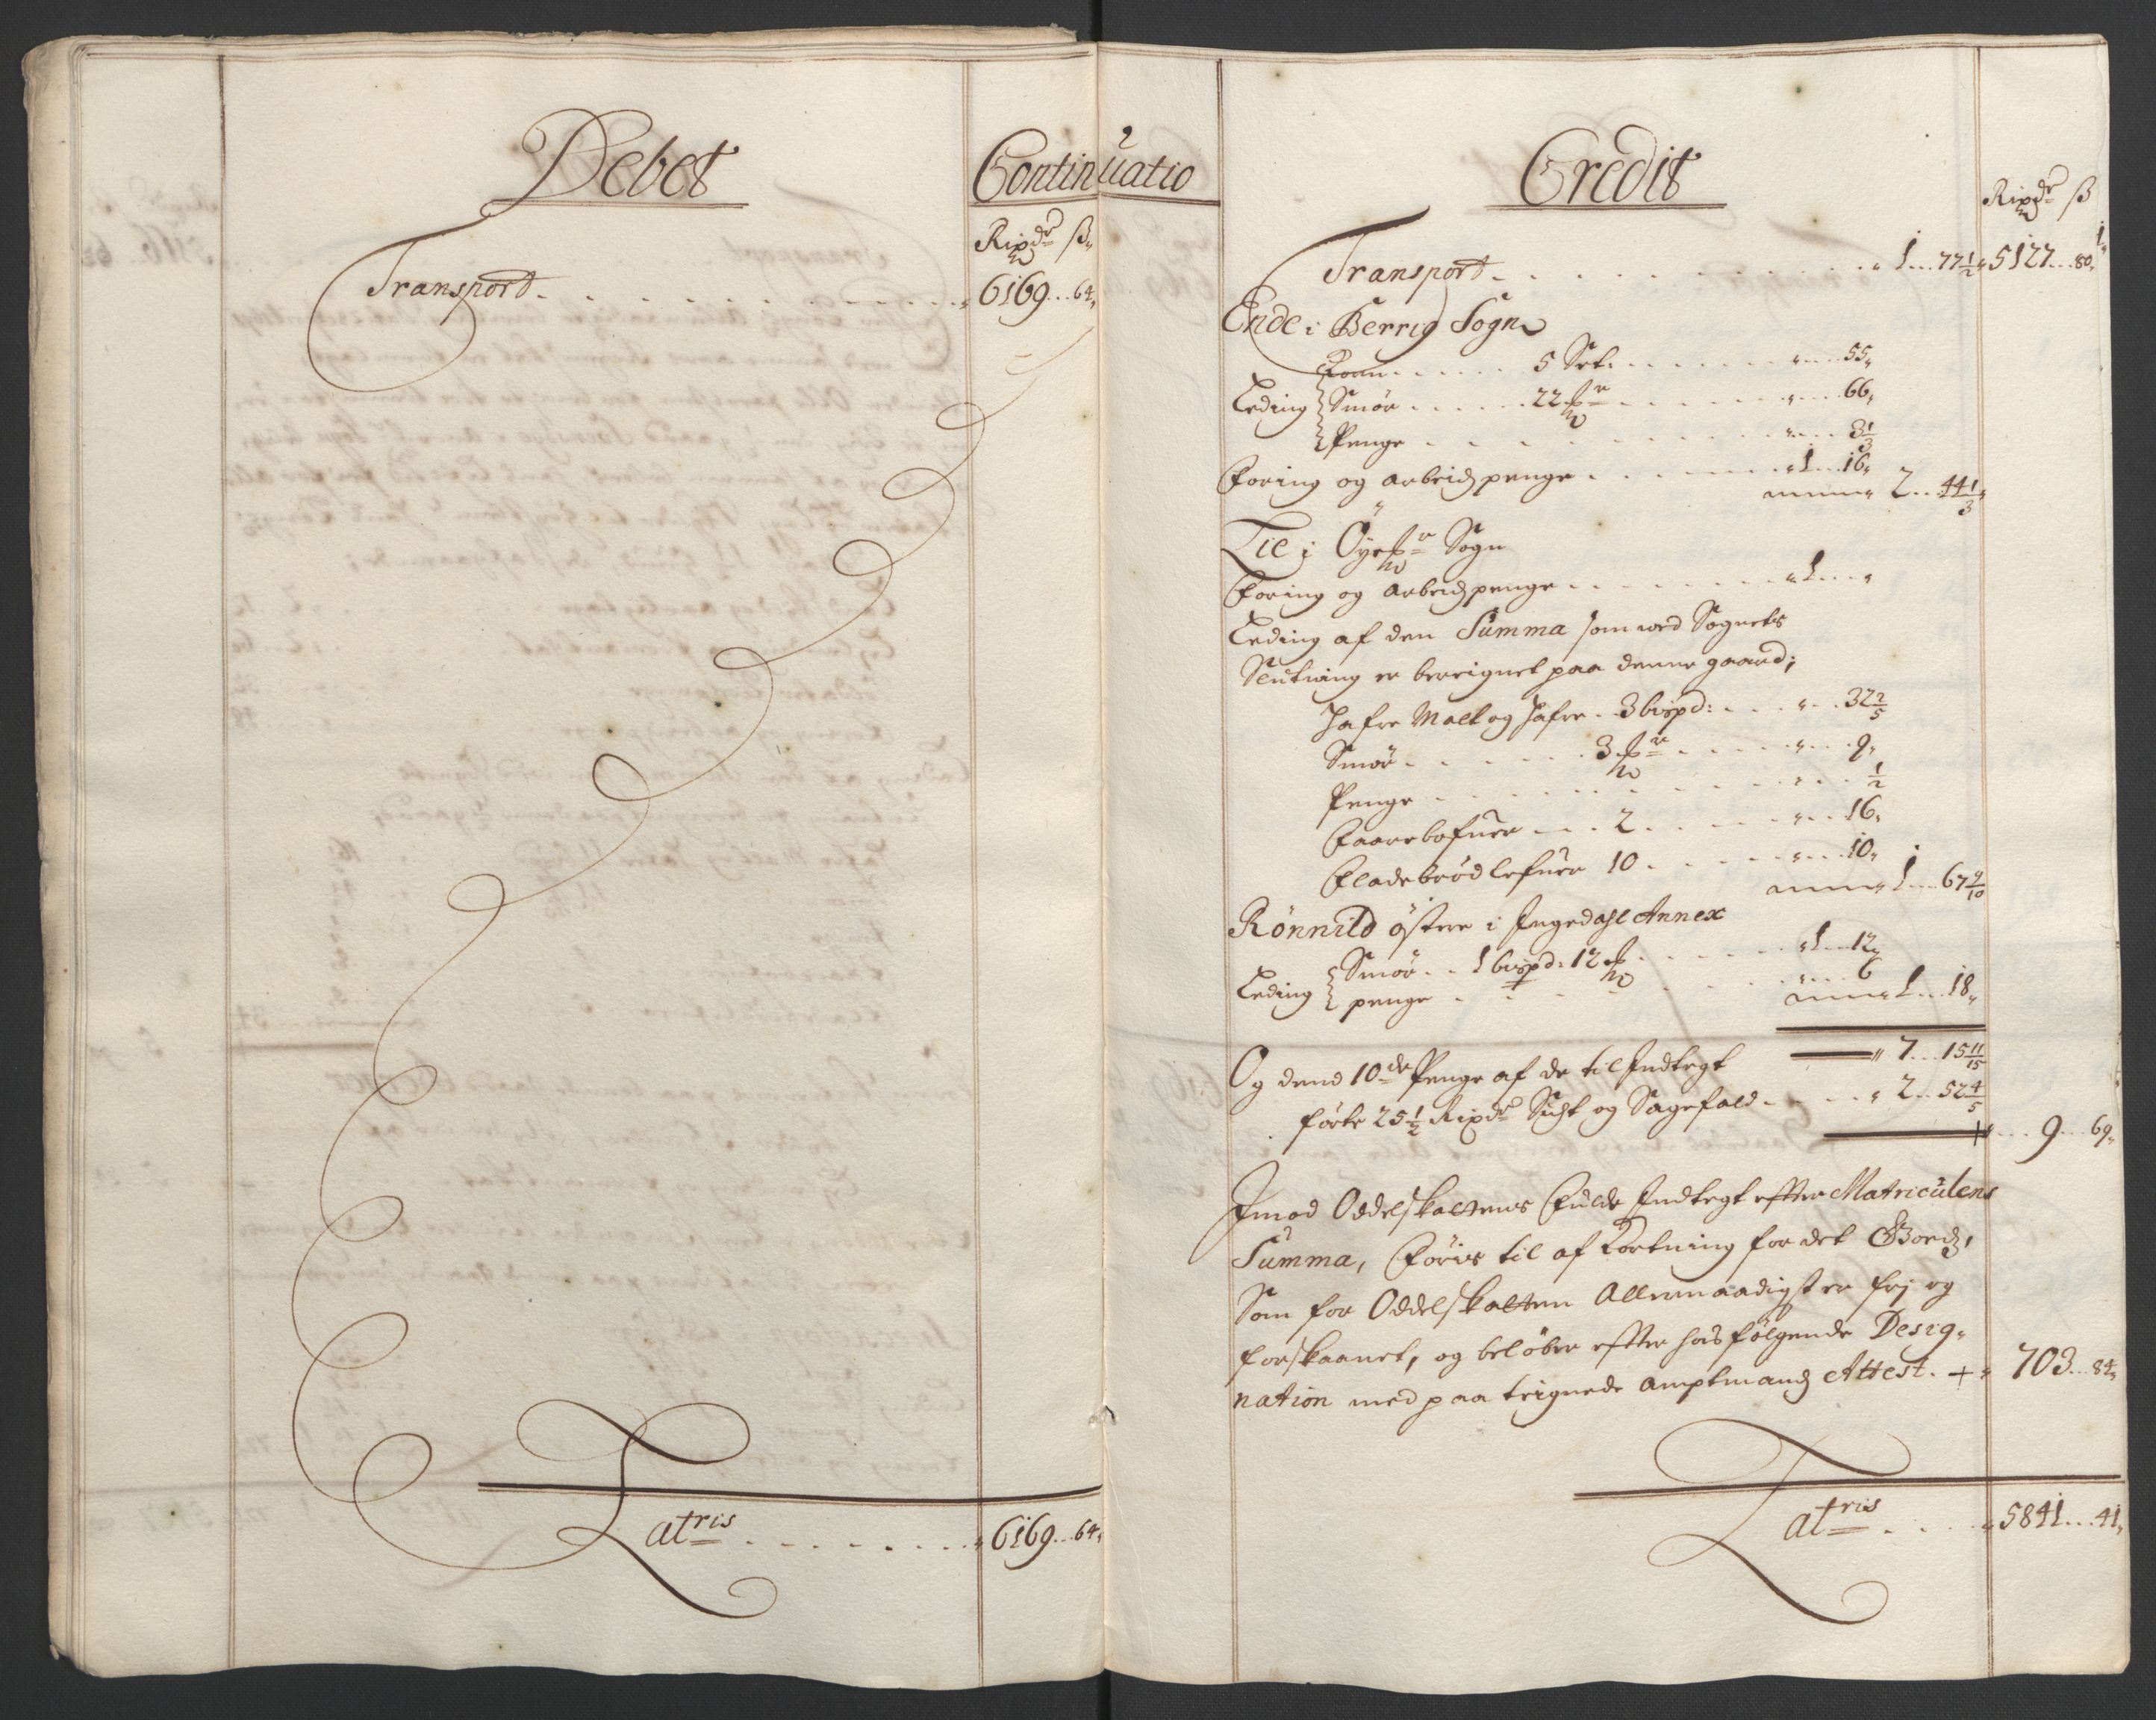 Debet
Continuatio
Rixdr ß
Transport 6169 64
Latris 6169 64
Credit
Rixdr ß
Transport 1 77 1/2 5127 80 1/
Ende i Berrig Sogn
Korn 5 Set. 55
Leding Smør 22 55
Penge 3 1/3
Foring og arbeidspenge 1 16
2 44 1/3
Lie i Øye Sogn
Foring og arbeidspenge 1
Leding af den Summa som ved Sognets
Slutning er bereignet paa denne gaard;
Hafre Malt og Hafre 3 bispd: 32 2/5
Smør 3 9
Penge 1/2
Faarebofuer 2 16
Fladebrødlefuer 10 10
1 67 9/10
Rønnild østere i Ingedahl Annex
Leding Smør 1 bispd: 12 1 12
penge 6
1 18
7 15 11/15
Og dend 10de Penge af de til Indtegt
førte 25 1/2 Rixdr Sigt og Sagefald 2 52 4/5
9 69
Imod Oddelskattens Fulde Indtegt efter Matriculens
Summa, Føris til afkortning for det Gods,
Som for Oddelskatten Allernaadigst er frj og
forskaanet, og beløber efter hosfølgende Desig-
nation med paa teignede amptmands Attest. + 703 84
Latris 5841 41